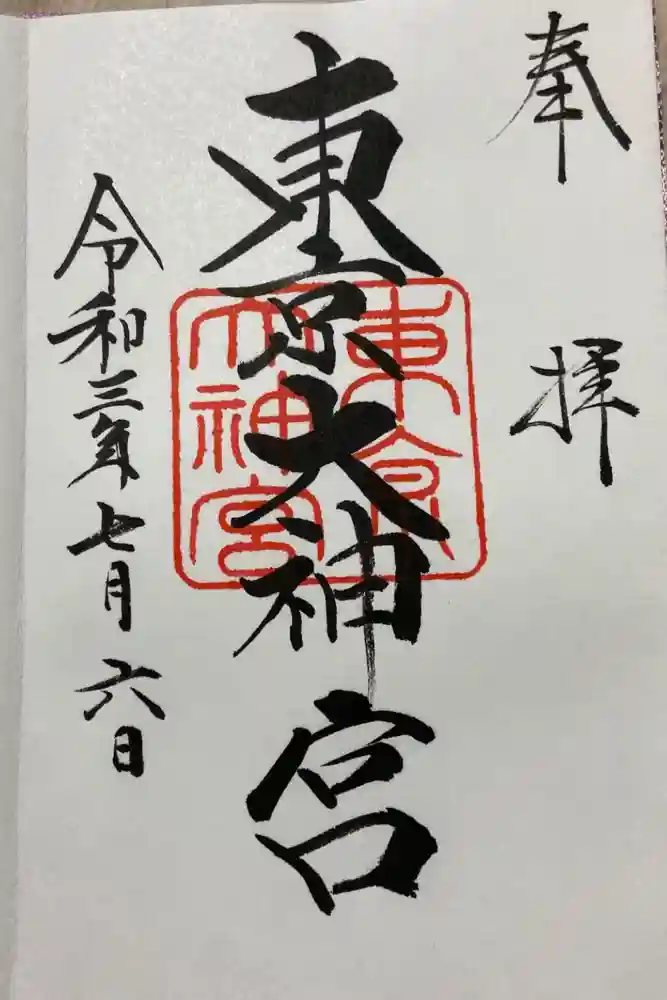 奉拝
東京大神宮
東京
大神宮
令和三年七月六日